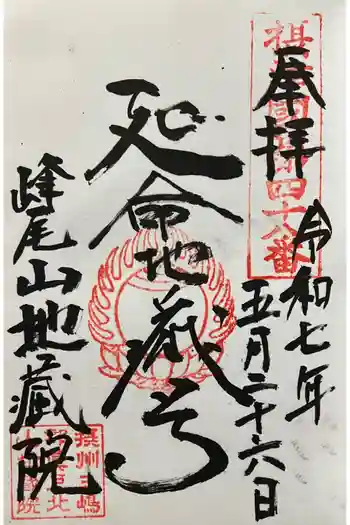 奉拝
摂津国第四十八番
令和七年
五月二十六日
延命地蔵尊
峰尾山地蔵院
摂州三嶋